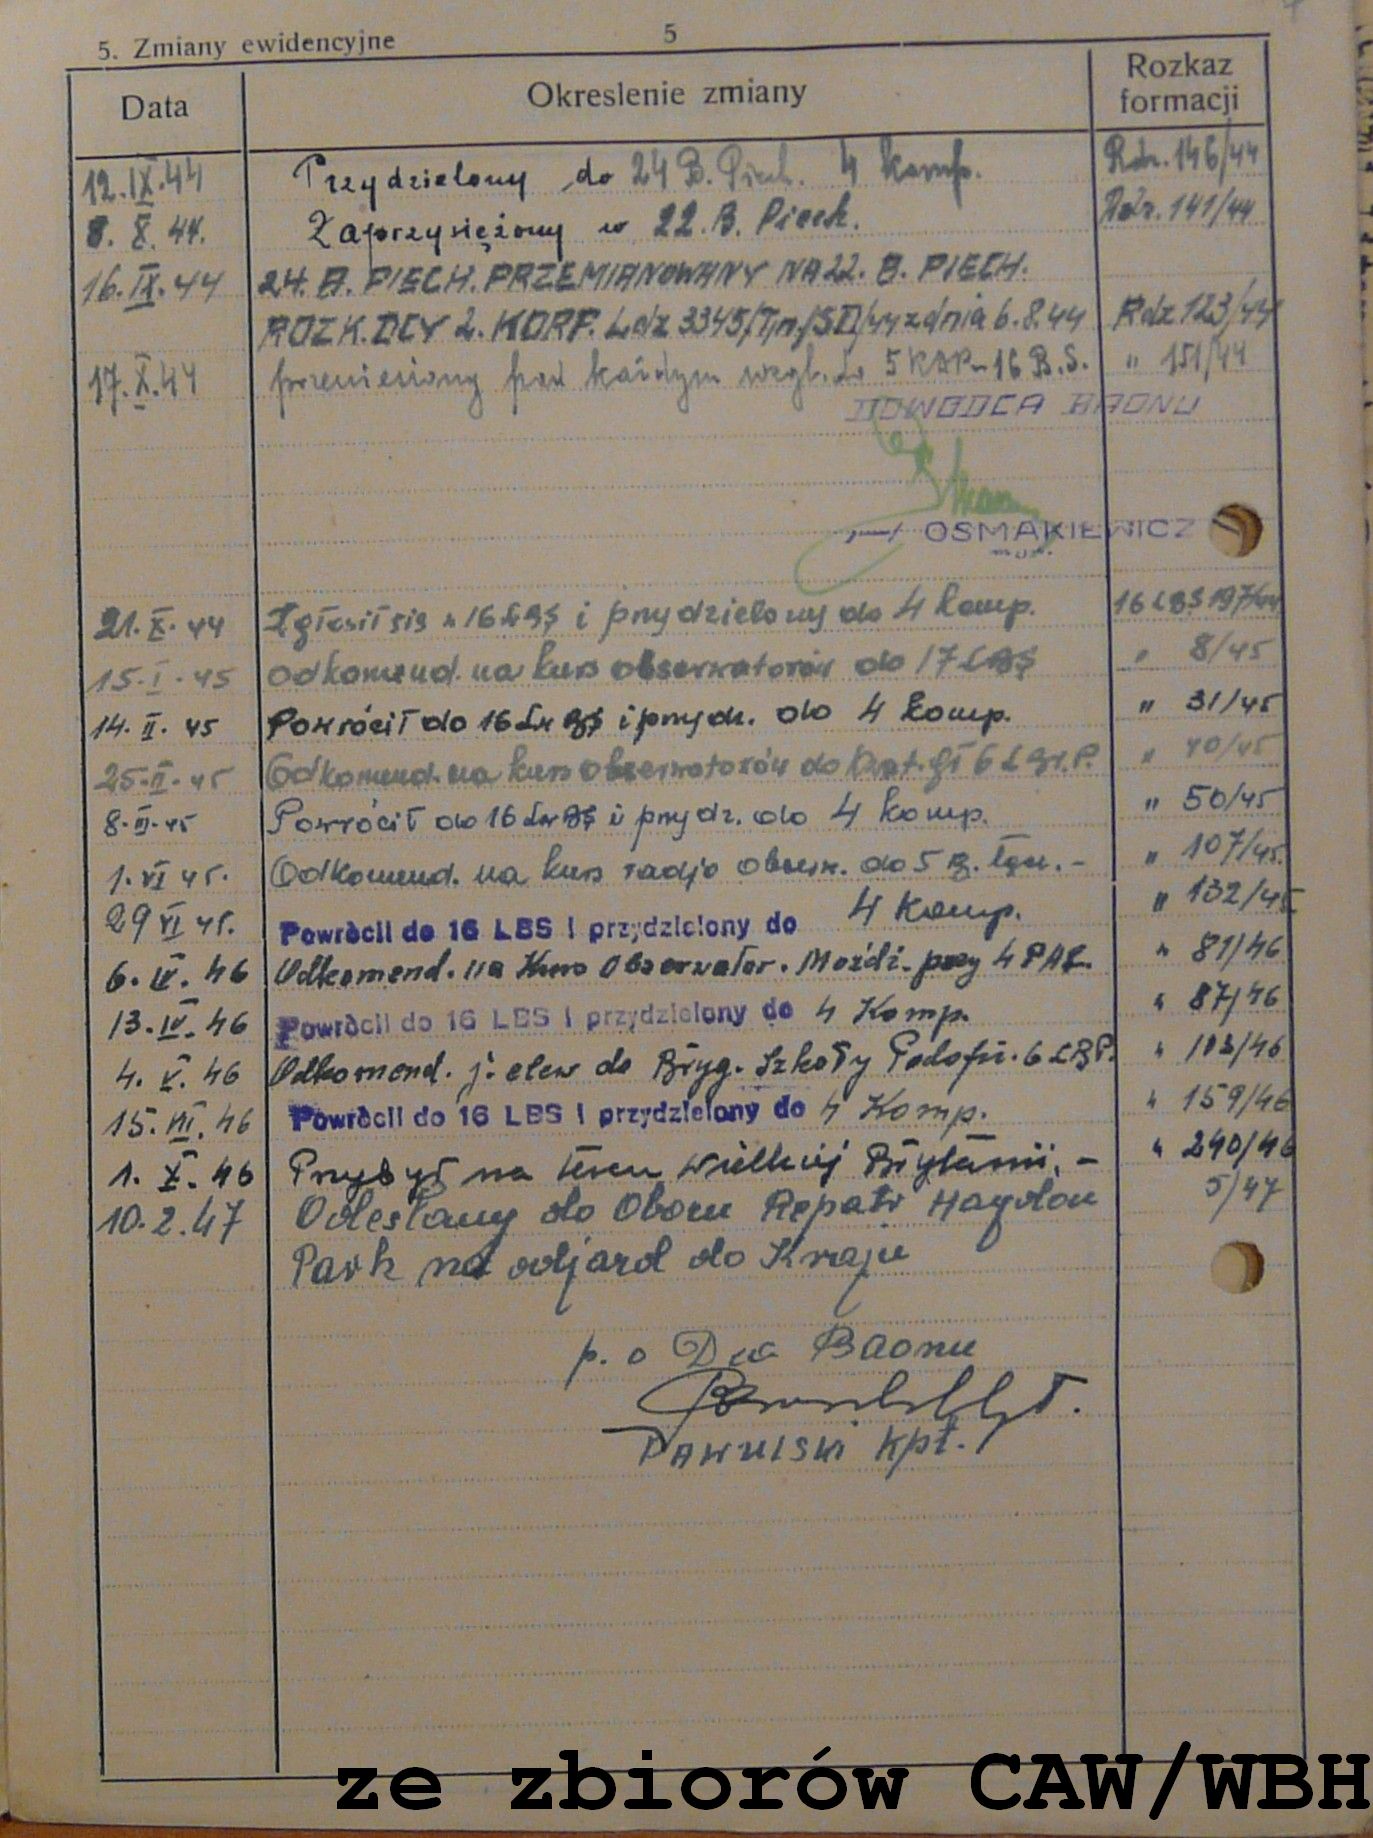 5. Zmiany ewidencyjne 5
Data Okreslenie zmiany Rozkaz formacji
12.IX.44 Przydzielony do 24 B. Piech. 4 komp. Rdz. 146/44
8. X. 44. Zaprzysiężony w 22. B. Piech. Rdz. 141/44
16.IX.44 24. B. PIECH. PRZEMIANOWANY NA 22. B. PIECH.
ROZK. DCY 2. KORP. Ldz 3345/Tjn/S.D/44 z dnia 6.8.44 Rdz 123/44
17.X.44 przeniesiony pod każdym wzgl. do 5 KDP-16 B.S. " 151/44
DOWÓDCA BAONU
OSMAKIEWICZ
mjr.
21.X.44 Zgłosił się w 16 LBS i przydzielony do 4 komp. 16 LBS 197/44
15.I.45 Odkomend. na kurs obserwatorów do 17 LBS " 8/45
14.II.45 Powrócił do 16 Lw BS i przydz. do 4 komp. " 31/45
25.II.45 Odkomend. na kurs obserwatorów do 6 L Br.P. " 40/45
8.III.45 Powrócił do 16 Lw BS i przydz. do 4 komp. " 50/45
1.VI 45. Odkomend. na kurs radjo obserw. do 5 B. Łącz. - " 107/45.
29 VI 45. Powrócił do 16 LBS i przydzielony do 4 Komp. " 132/45
6.IV.46 Odkomend. na Kurs Obserwator. Moźdź. przy 4 PAL. " 81/46
13.IV.46 Powrócił do 16 LBS i przydzielony do 4 Komp. " 87/46
4.V.46 Odkomend. j. elew do Bryg. Szkoły Podofic. 6 LBP. " 103/46
15.VII.46 Powrócił do 16 LBS i przydzielony do 4 Komp. " 159/46
1.X.46 Przybył na teren Wielkiej Brytanii. - " 240/46
10.2.47 Odesłany do Obozu Repatr Haydon 5/47
Park na odjazd do Kraju
p. o Dca Baonu
PAWULSKI kpt.
ze zbiorów CAW/WBH